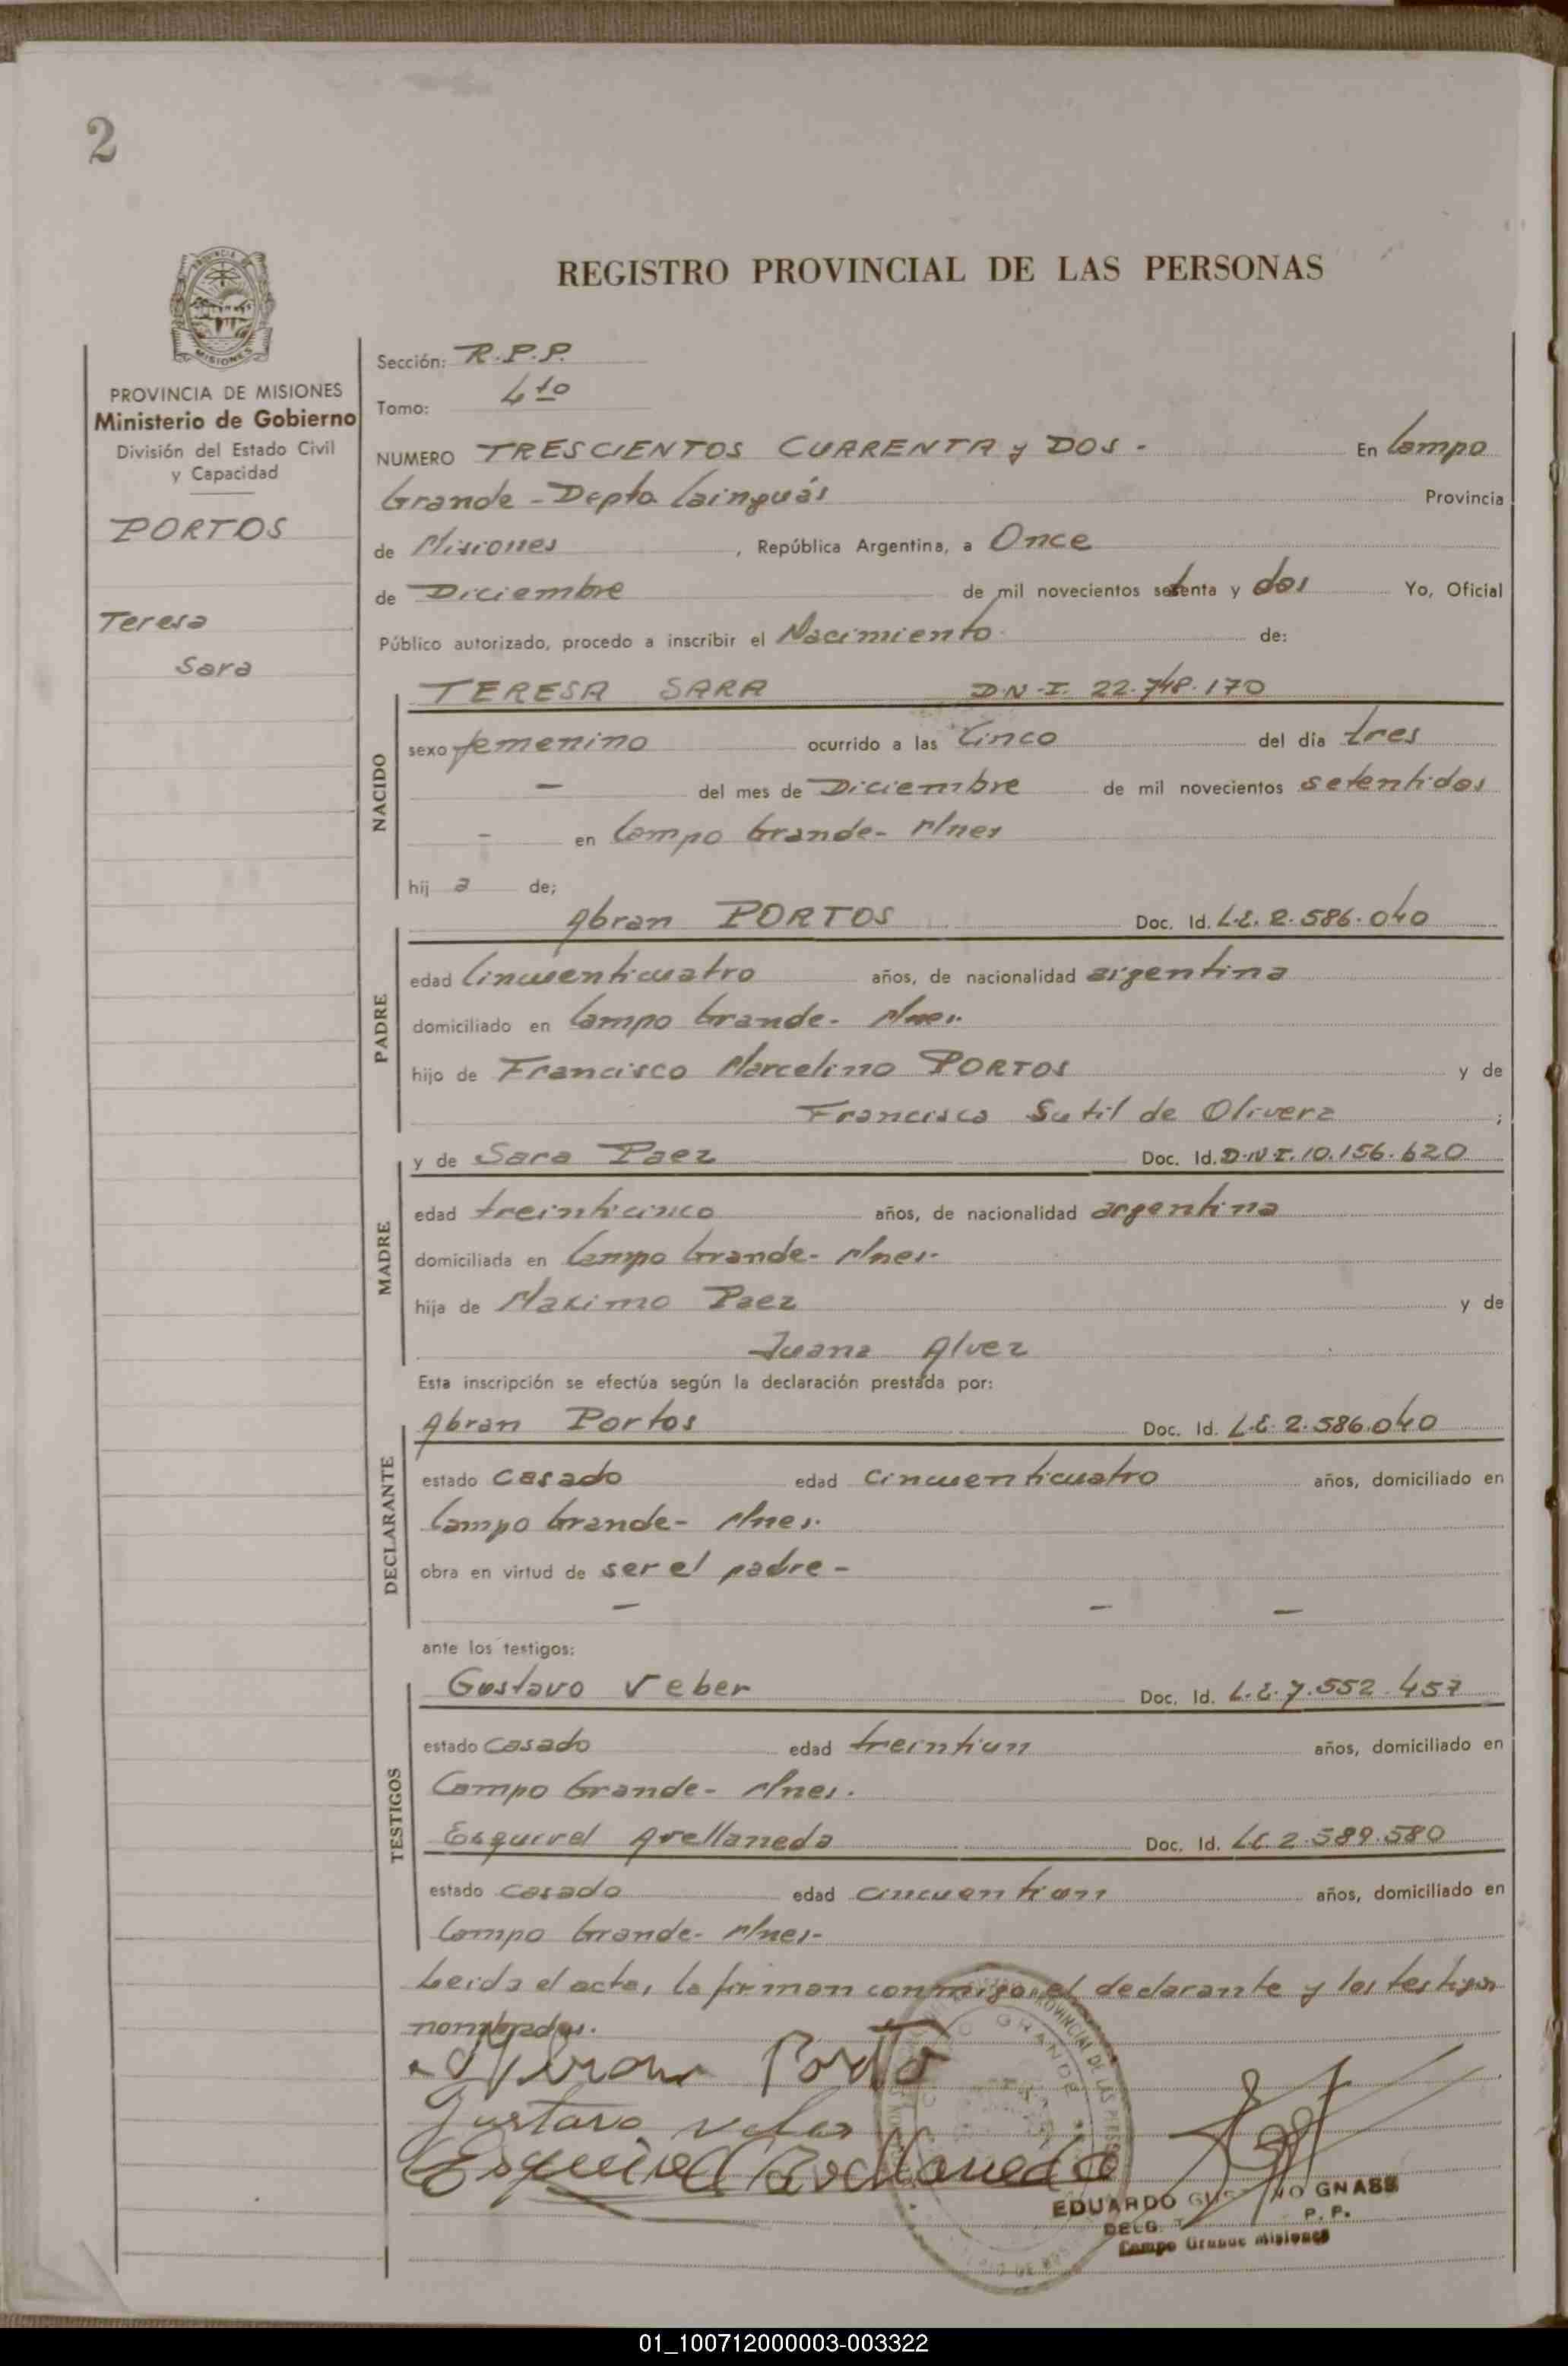 2
REGISTRO PROVINCIAL DE LAS PERSONAS
MISIONES
PROVINCIA DE MISIONES
Ministerio de Gobierno
División del Estado Civil
y Capacidad
PORTOS
Teresa
Sara
Sección: R.P.P.
Tomo: 4to
NUMERO TRESCIENTOS CUARENTA y DOS - En Campo
Grande - Depto. Cainguás Provincia
de Misiones , República Argentina, a Once
de Diciembre de mil novecientos setenta y dos Yo, Oficial
Público autorizado, procedo a inscribir el Nacimiento de:
NACIDO
TERESA SARA D.N.I. 22.748.170
sexo femenino ocurrido a las Cinco del día tres
- del mes de Diciembre de mil novecientos setentidos
- en Campo Grande - Mnes
hij a de;
PADRE
Abran PORTOS Doc. Id. L.E. 2.586.040
edad Cincuenticuatro años, de nacionalidad argentina
domiciliado en Campo Grande - Mnes.
hijo de Francisco Marcelino PORTOS y de
Francisca Sutil de Olivera ;
MADRE
y de Sara Paez Doc. Id. D.N.I. 10.156.620
edad treinticinco años, de nacionalidad argentina
domiciliada en Campo Grande - Mnes.
hija de Maximo Paez y de
Juana Alvez
Esta inscripción se efectúa según la declaración prestada por:
DECLARANTE
Abran Portos Doc. Id. L.E. 2.586.040
estado casado edad cincuenticuatro años, domiciliado en
Campo Grande - Mnes.
obra en virtud de ser el padre -
- - -
ante los testigos:
TESTIGOS
Gustavo Veber Doc. Id. L.E. 7.552.457
estado casado edad treintiun años, domiciliado en
Campo Grande - Mnes.
Esquivel Avellaneda Doc. Id. L.E. 2.589.580
estado casado edad cincuentiun años, domiciliado en
Campo Grande - Mnes-
Leida el acta, la firman conmigo el declarante y los testigos
nombrados.
Abran Porto
Gustavo veber
Esquivel Avellaneda
PROVINCIAL DE LAS
GRANDE
EDUARDO GNASS
DELG. P. P.
Campo Grande Misiones
01_100712000003-003322